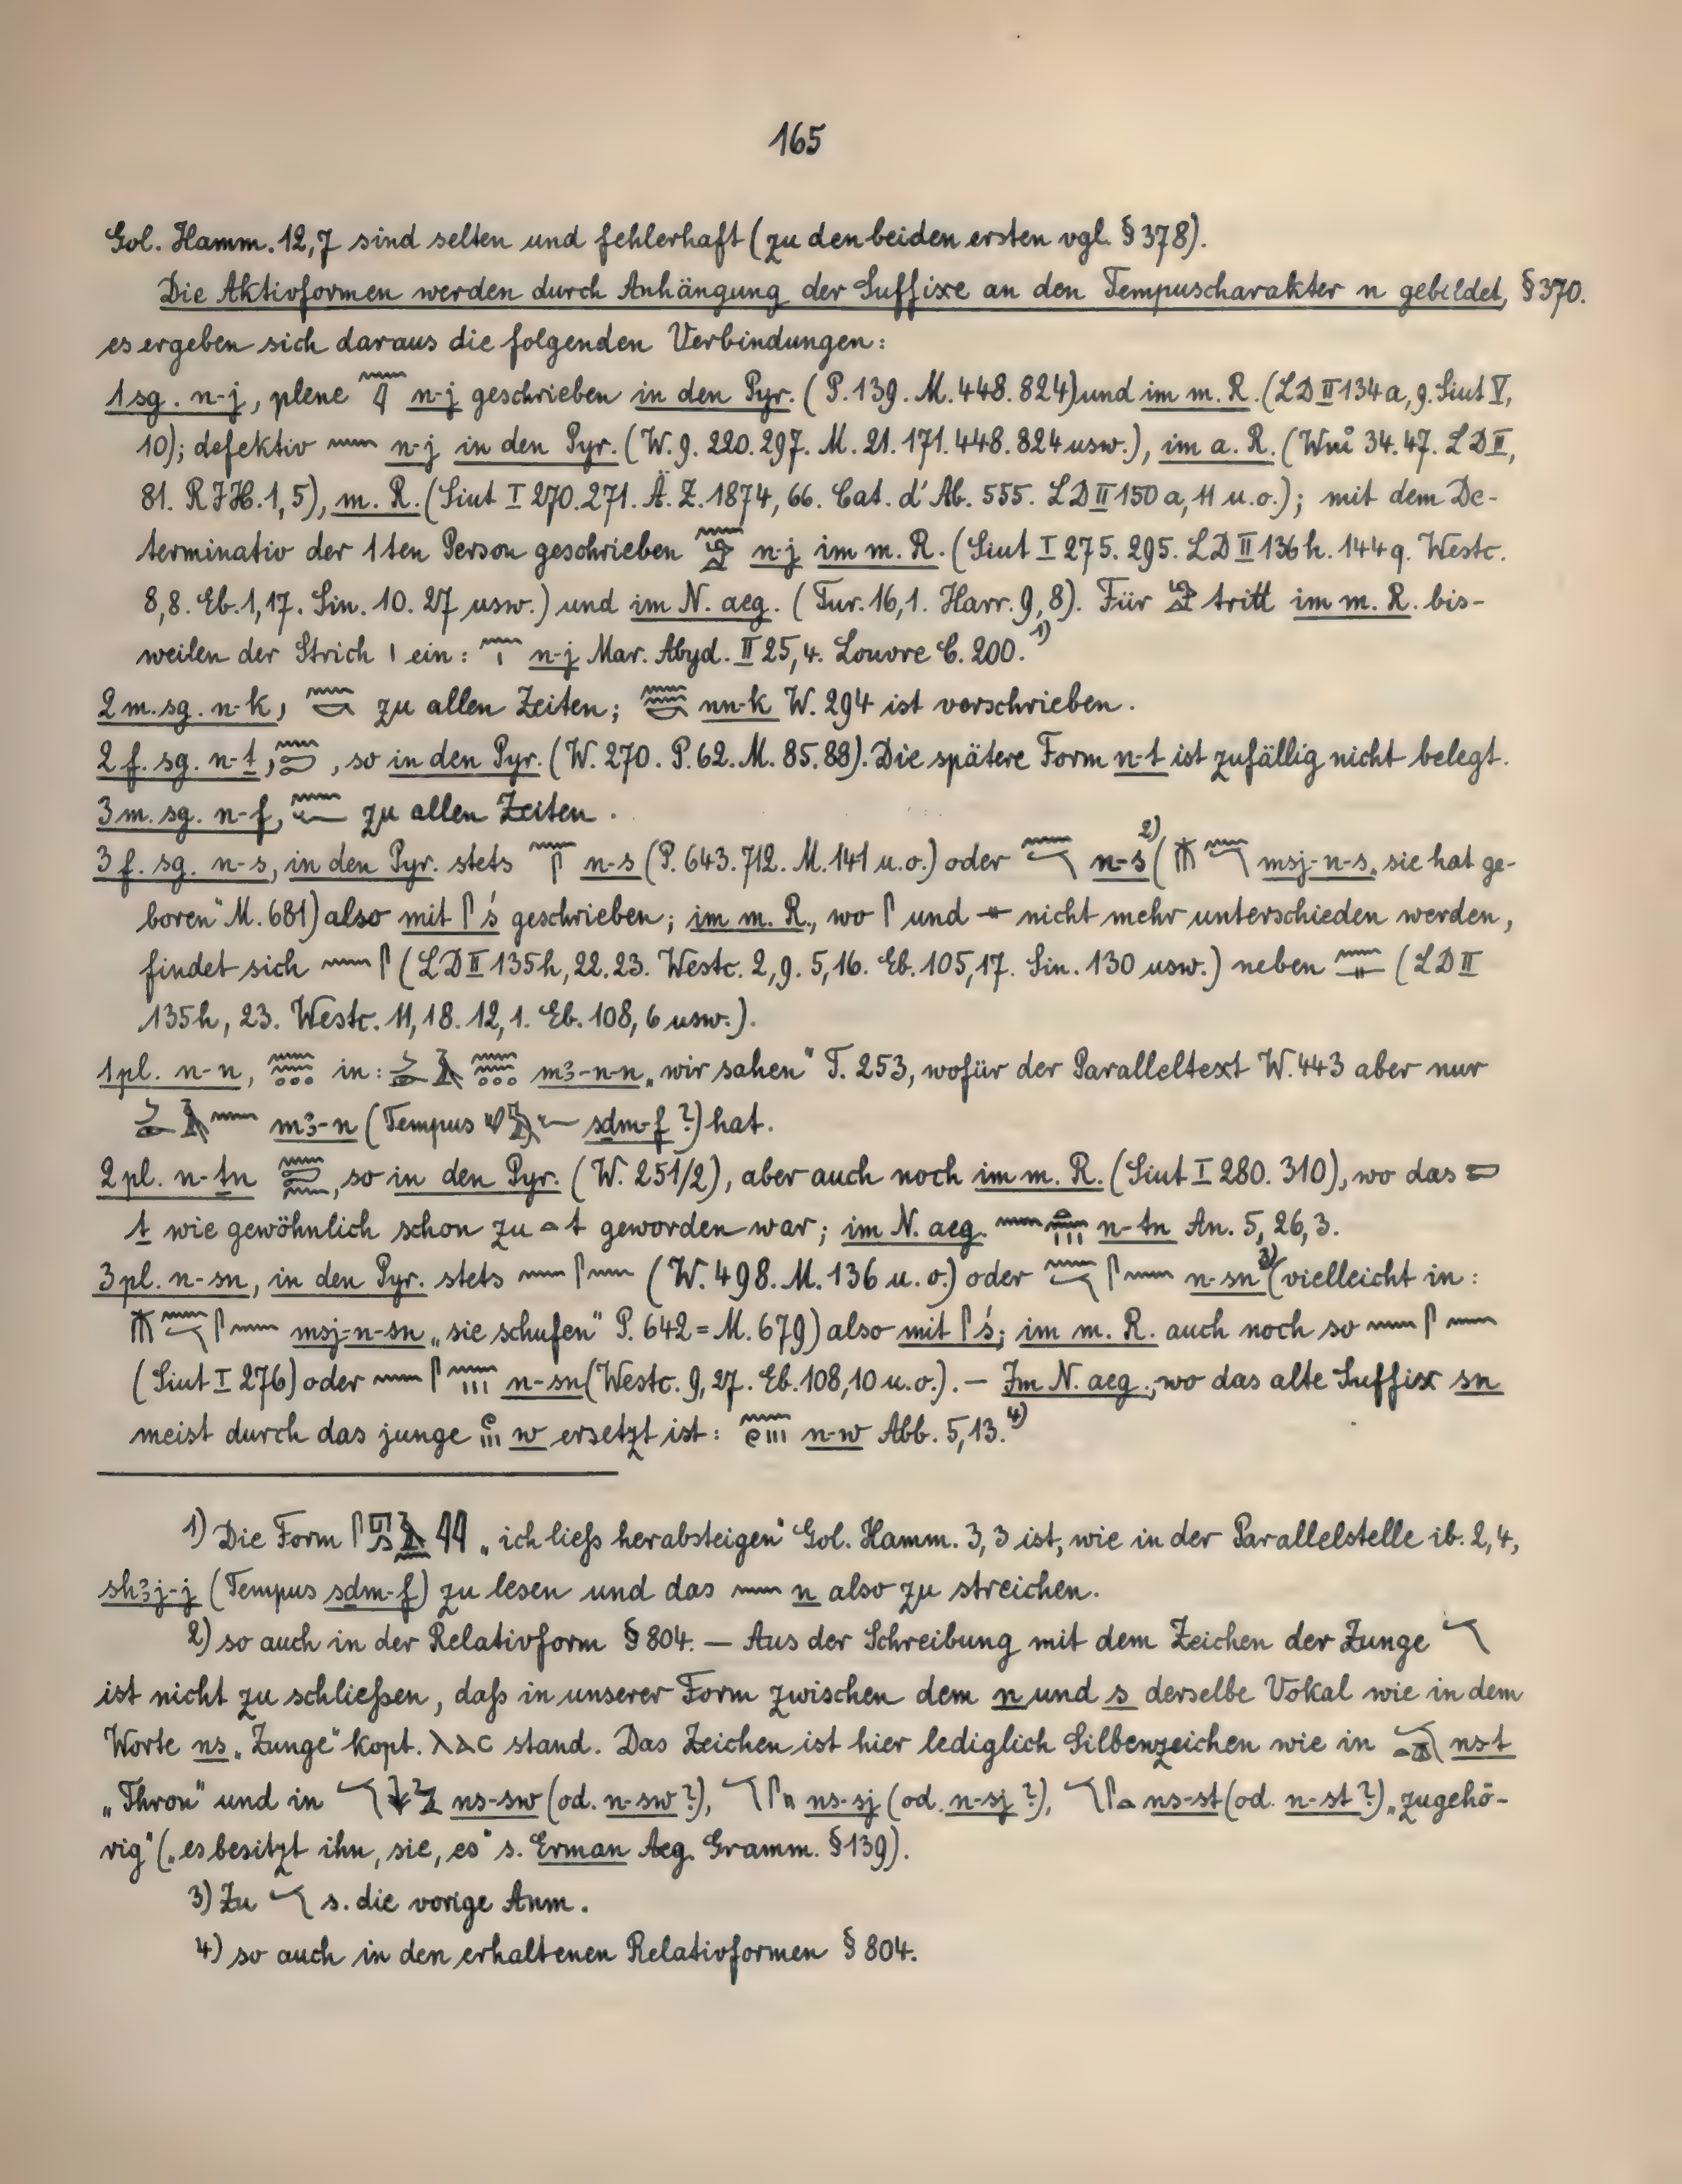 165
Gol. Hamm. 12,7 sind selten und fehlerhaft (zu den beiden ersten vgl. § 378).
Die Aktivformen werden durch Anhängung der Suffixe an den Tempuscharakter n gebildet, § 370.
es ergeben sich daraus die folgenden Verbindungen:
1 sg. n-j, plene 𓈖𓇋 n-j geschrieben in den Pyr. (P. 139. M. 448. 824) und im m. R. (LD II 134 a, 9. Siut V,
10); defektiv 𓈖 n-j in den Pyr. (W. 9. 220. 297. M. 21. 171. 448. 824 usw.), im a. R. (Wni 34. 47. LD II,
81. RJH. 1, 5), m. R. (Siut I 270. 271. Ä. Z. 1874, 66. Cat. d'Ab. 555. LD II 150 a, 11 u. o.); mit dem De-
terminativ der 1ten Person geschrieben 𓈖𓀀 n-j im m. R. (Siut I 275. 295. LD II 136 h. 144 q. Westc.
8,8. Eb. 1,17. Sin. 10. 27 usw.) und im N. aeg. (Tur. 16,1. Harr. 9, 8). Für 𓀀 tritt im m. R. bis-
weilen der Strich 𓏤 ein: 𓈖𓏤 n-j Mar. Abyd. II 25,4. Louvre C. 200. 1)
2 m. sg. n-k, 𓈖𓎡 zu allen Zeiten; 𓈖𓈖𓎡 nn-k W. 294 ist verschrieben.
2 f. sg. n-ṯ, 𓈖𓍿, so in den Pyr. (W. 270. P. 62. M. 85. 88). Die spätere Form n-t ist zufällig nicht belegt.
3 m. sg. n-f, 𓈖𓆑 zu allen Zeiten.
3 f. sg. n-s, in den Pyr. stets 𓈖𓋴 n-s (P. 643. 712. M. 141 u. o.) oder 𓈖𓄓 n-s 2) (𓄟𓈖𓄓 msj-n-s „sie hat ge-
boren" M. 681) also mit 𓋴 ś geschrieben; im m. R., wo 𓋴 und 𓊃 nicht mehr unterschieden werden,
findet sich 𓈖𓋴 (LD II 135 h, 22. 23. Westc. 2,9. 5,16. Eb. 105,17. Sin. 130 usw.) neben 𓈖𓊃 (LD II
135 h, 23. Westc. 11,18. 12,1. Eb. 108, 6 usw.).
1 pl. n-n, 𓈖𓈖𓏌𓏌𓏌 in: 𓌳𓅓 𓈖𓈖 m3-n-n „wir sahen" T. 253, wofür der Paralleltext W. 443 aber nur
𓌳𓄿𓈖 m3-n (Tempus 𓄔𓅓𓆑 sḏm-f ?) hat.
2 pl. n-ṯn 𓈖𓍿𓈖, so in den Pyr. (W. 251/2), aber auch noch im m. R. (Siut I 280. 310), wo das 𓍿
ṯ wie gewöhnlich schon zu 𓏏 t geworden war; im N. aeg. 𓈖𓏏𓈖𓏥 n-tn An. 5, 26, 3.
3 pl. n-sn, in den Pyr. stets 𓈖𓋴𓈖 (W. 498. M. 136 u. o.) oder 𓈖𓄓𓋴𓈖 n-sn 3) (vielleicht in:
𓄟𓈖𓄓𓋴𓈖 msj-n-sn „sie schufen" P. 642 = M. 679) also mit 𓋴 ś; im m. R. auch noch so 𓈖𓋴𓈖
(Siut I 276) oder 𓈖𓋴𓈖𓏥 n-sn (Westc. 9, 27. Eb. 108,10 u. o.). — Im N. aeg., wo das alte Suffix sn
meist durch das junge 𓏲𓏥 w ersetzt ist: 𓈖𓏲𓏥 n-w Abb. 5,13. 4)
1) Die Form „ich ließ herabsteigen" Gol. Hamm. 3, 3 ist, wie in der Parallelstelle ib. 2, 4,
sh3j-j (Tempus sḏm-f) zu lesen und das 𓈖 n also zu streichen.
2) so auch in der Relativform § 804. — Aus der Schreibung mit dem Zeichen der Zunge 𓄓
ist nicht zu schließen, daß in unserer Form zwischen dem n und s derselbe Vokal wie in dem
Worte ns „Zunge" kopt. ⲗⲁⲥ stand. Das Zeichen ist hier lediglich Silbenzeichen wie in nst
„Thron" und in 𓄓𓇓𓅱 ns-sw (od. n-sw ?), 𓄓𓋴𓏭 ns-sj (od. n-sj ?), 𓄓𓋴𓏏 ns-st (od. n-st ?) „zugehö-
rig" („es besitzt ihn, sie, es" s. Erman Aeg. Gramm. § 139).
3) Zu 𓄓 s. die vorige Anm.
4) so auch in den erhaltenen Relativformen § 804.